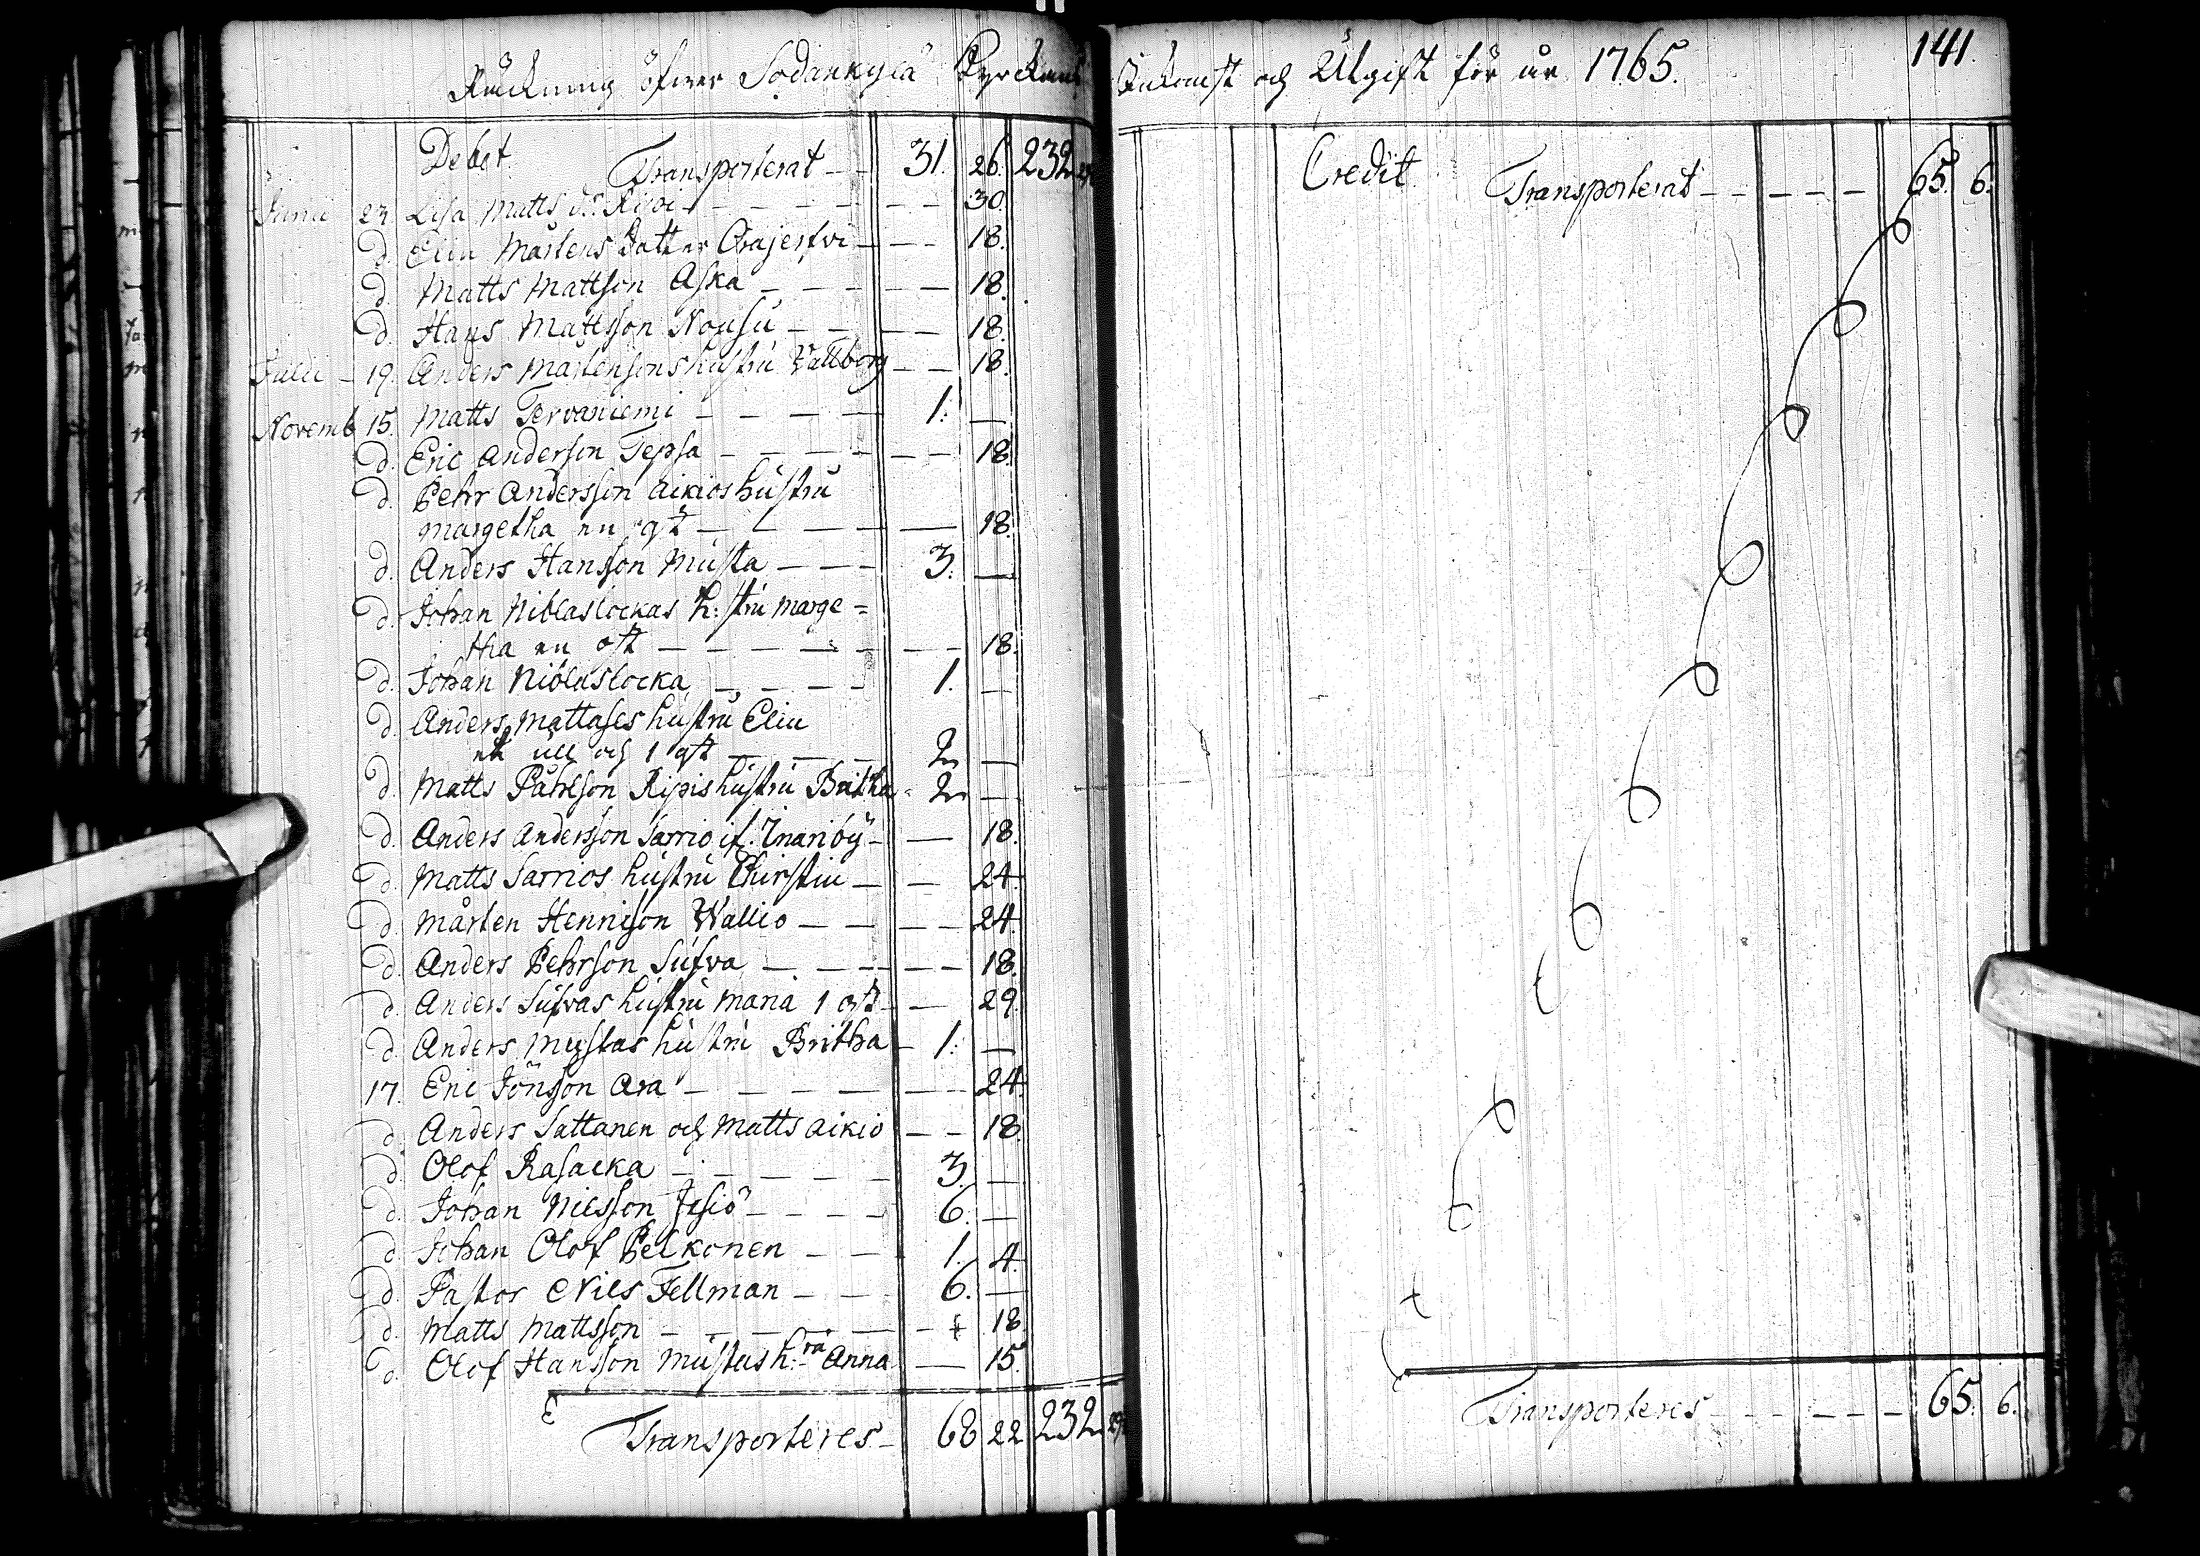 Räckning öfwer Sodankylä Kyrckans Inkomst och Utgift för år 1765. 141.
Debet Transporterat 31. 26. 232
Junii 23 Lisa Matts dr. Kiwi 30.
d. Elin Mårtens Datter Orajerfvi 18.
d. Matts Mattson Aska 18.
d. Hans Mattsson Nousu 18.
Julii 19. Anders Mårtensons hustru Vallborg 18.
Novemb 15. Matts Tervaniemi 1. —
d. Eric Anderson Tepsa 18.
d. Pehr Andersson Aikios hustru
margetha en qt 18.
d. Anders Hansson Musta 3. —
d. Johan Niblaslockas h:stru marge=
tha en 18.
d. Johan Niblaslocka 1. —
d. Anders Mattases hustru Elin
ull och 1 2 —
d. Matts Påhlson Kipis hustru Britha 2 —
d. Anders Andersson Sarrio if. Enariby 18.
d. Matts Sarrios hustru Chirstin 24.
d. Mårten Hennisson Wallio 24.
d. Anders Pehrson Sufva 18.
d. Anders Sufvas hustru Maria 1 29.
d. Anders Mustas hustru Britha 1. —
17. Eric Jönsson Ara 24.
d. Anders Sattanen och Matts Aikio 18.
d. Olof Rasacka 3. —
d. Johan Nilsson Jesiö 6. —
d. Johan Olof Pelkonen 1. 4.
d. Pastor Nils Fellman 6. —
d. Matts Mattsson 18.
d. Olof Hansson Mustas h:ru Anna 15.
Transporteres 68 22 232
Credit Transporterat 65. 6.
Transporteres 65. 6.